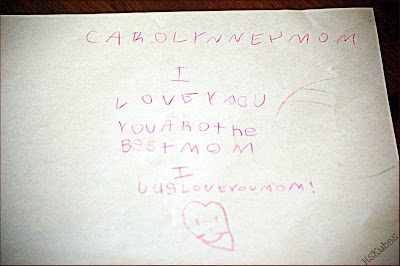 CAROLYNNEYMOM
I
LOVEYOU
YOUAROthe
BestMOM
I
UUGLOVEYOUMOM!
HSKubes